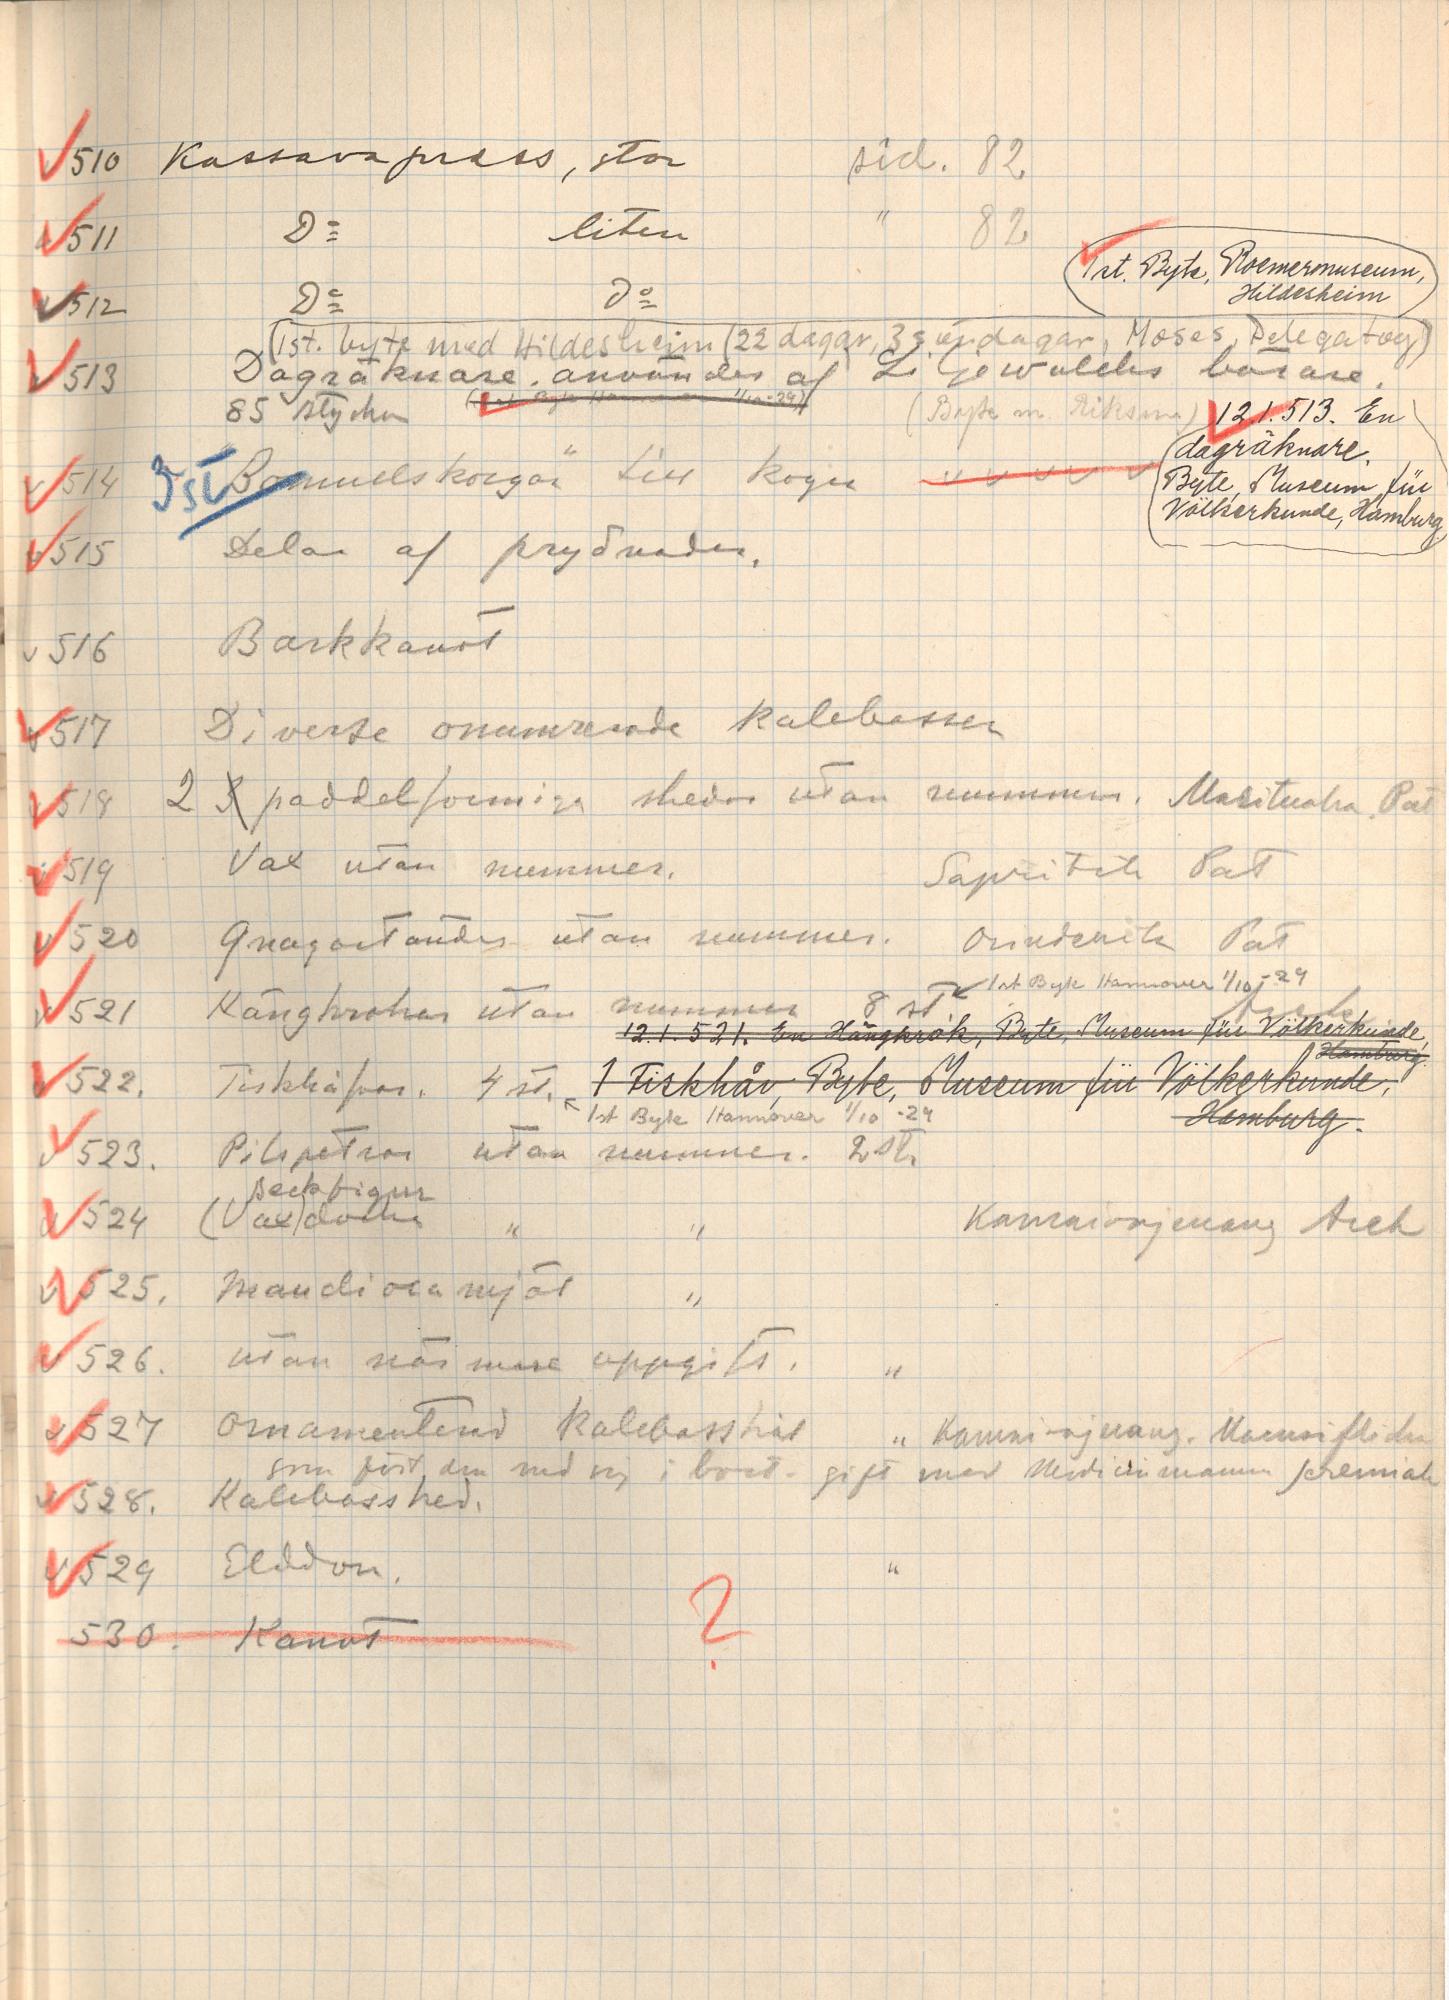 510 Kassavapress, stor sid. 82
511 Do liten " 82
1 st. Byte, Roemermuseum,
Hildesheim
512 Do do
(1st. byte med Hildesheim (22 dagar, 3 söndagar, Moses, Delegatag)
513 Dagräknare. användes af Liljewalchs bärare.
85 stycken (Byte m. Riksm)
12.1.513. En
dagräknare.
Byte, Museum für
Völkerkunde, Hamburg
514 3 st Bomuelskorgar till koger
515 Delar af prydnader.
516 Barkkanot
517 Diverse onumrerade kalebasser
518 2 paddelformiga skedar utan nummer. Pat
519 Vax utan nummer. Pat
520 Gnagartänder utan nummer. Pat
521 Hängkrokar utan nummer 8 st 1st Byte Hannover 1/10-29
12.1.521. En Hängkrok, Byte, Museum für Völkerkunde,
Hamburg
522. Fiskhåfvar. 4 st. 1 Fiskhåv, Byte, Museum für Völkerkunde,
1st Byte Hannover 1/10 -29 Hamburg.
523. Pilspetsar utan nummer. 2 st
Beckfigur
524 (Vax)docka " " Aich
525. Mandiocamjöl "
526. utan närmare uppgift. "
527 Ornamenterad kalebasskål "
som fört den med sig i bort- gift med Medicinmannen Jeremiah
528. Kalebassked.
529 Elddon. "
530. Kanot ?